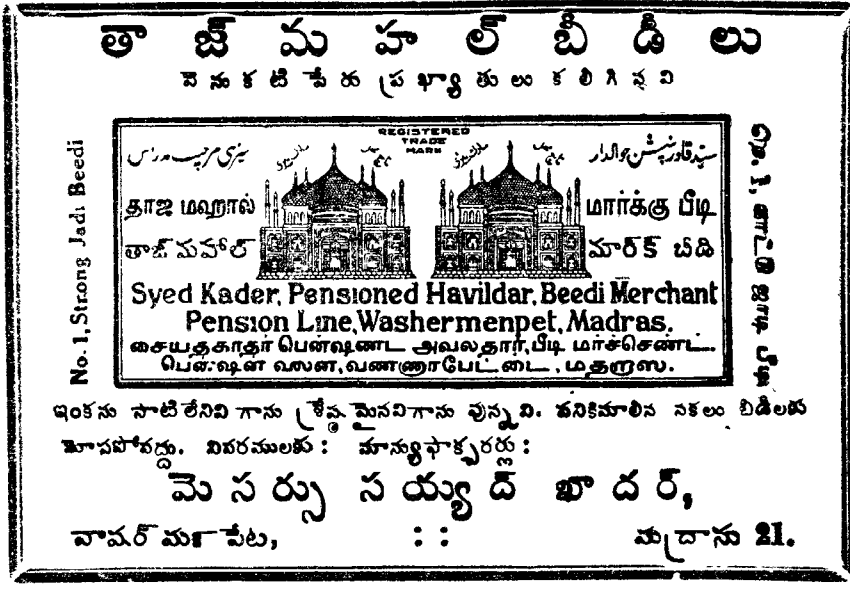 తాజ్ మహల్ బీడీలు
వెనుకటి పేరు ప్రఖ్యాతులు కలిగినవి
No. 1, Strong Jadi Beedi
REGISTERED
TRADE
MARK
தாஜ மஹால் மார்க்கு பீடி
తాజ్ మహల్ మార్క్ బీడి
Syed Kader, Pensioned Havildar, Beedi Merchant
Pension Line, Washermenpet, Madras.
சையதகாதர் பென்ஷண்ட அவலதார், பீடி மர்ச்செண்ட்.
பென்ஷன் லைன, வண்ணாபேட்டை, மதராஸ.
நெ. 1, காட்டு ஜாடி பீடி
ఇంకను సాటిలేనివి గాను శ్రేష్ఠమైనవిగాను వున్నవి. పనికిమాలిన నకలు బీడీలకు
మోసపోవద్దు. వివరములకు : మాన్యుఫాక్చరర్లు :
మెసర్సు సయ్యద్ ఖాదర్,
వాషర్ మన్ పేట, : : మద్రాసు 21.